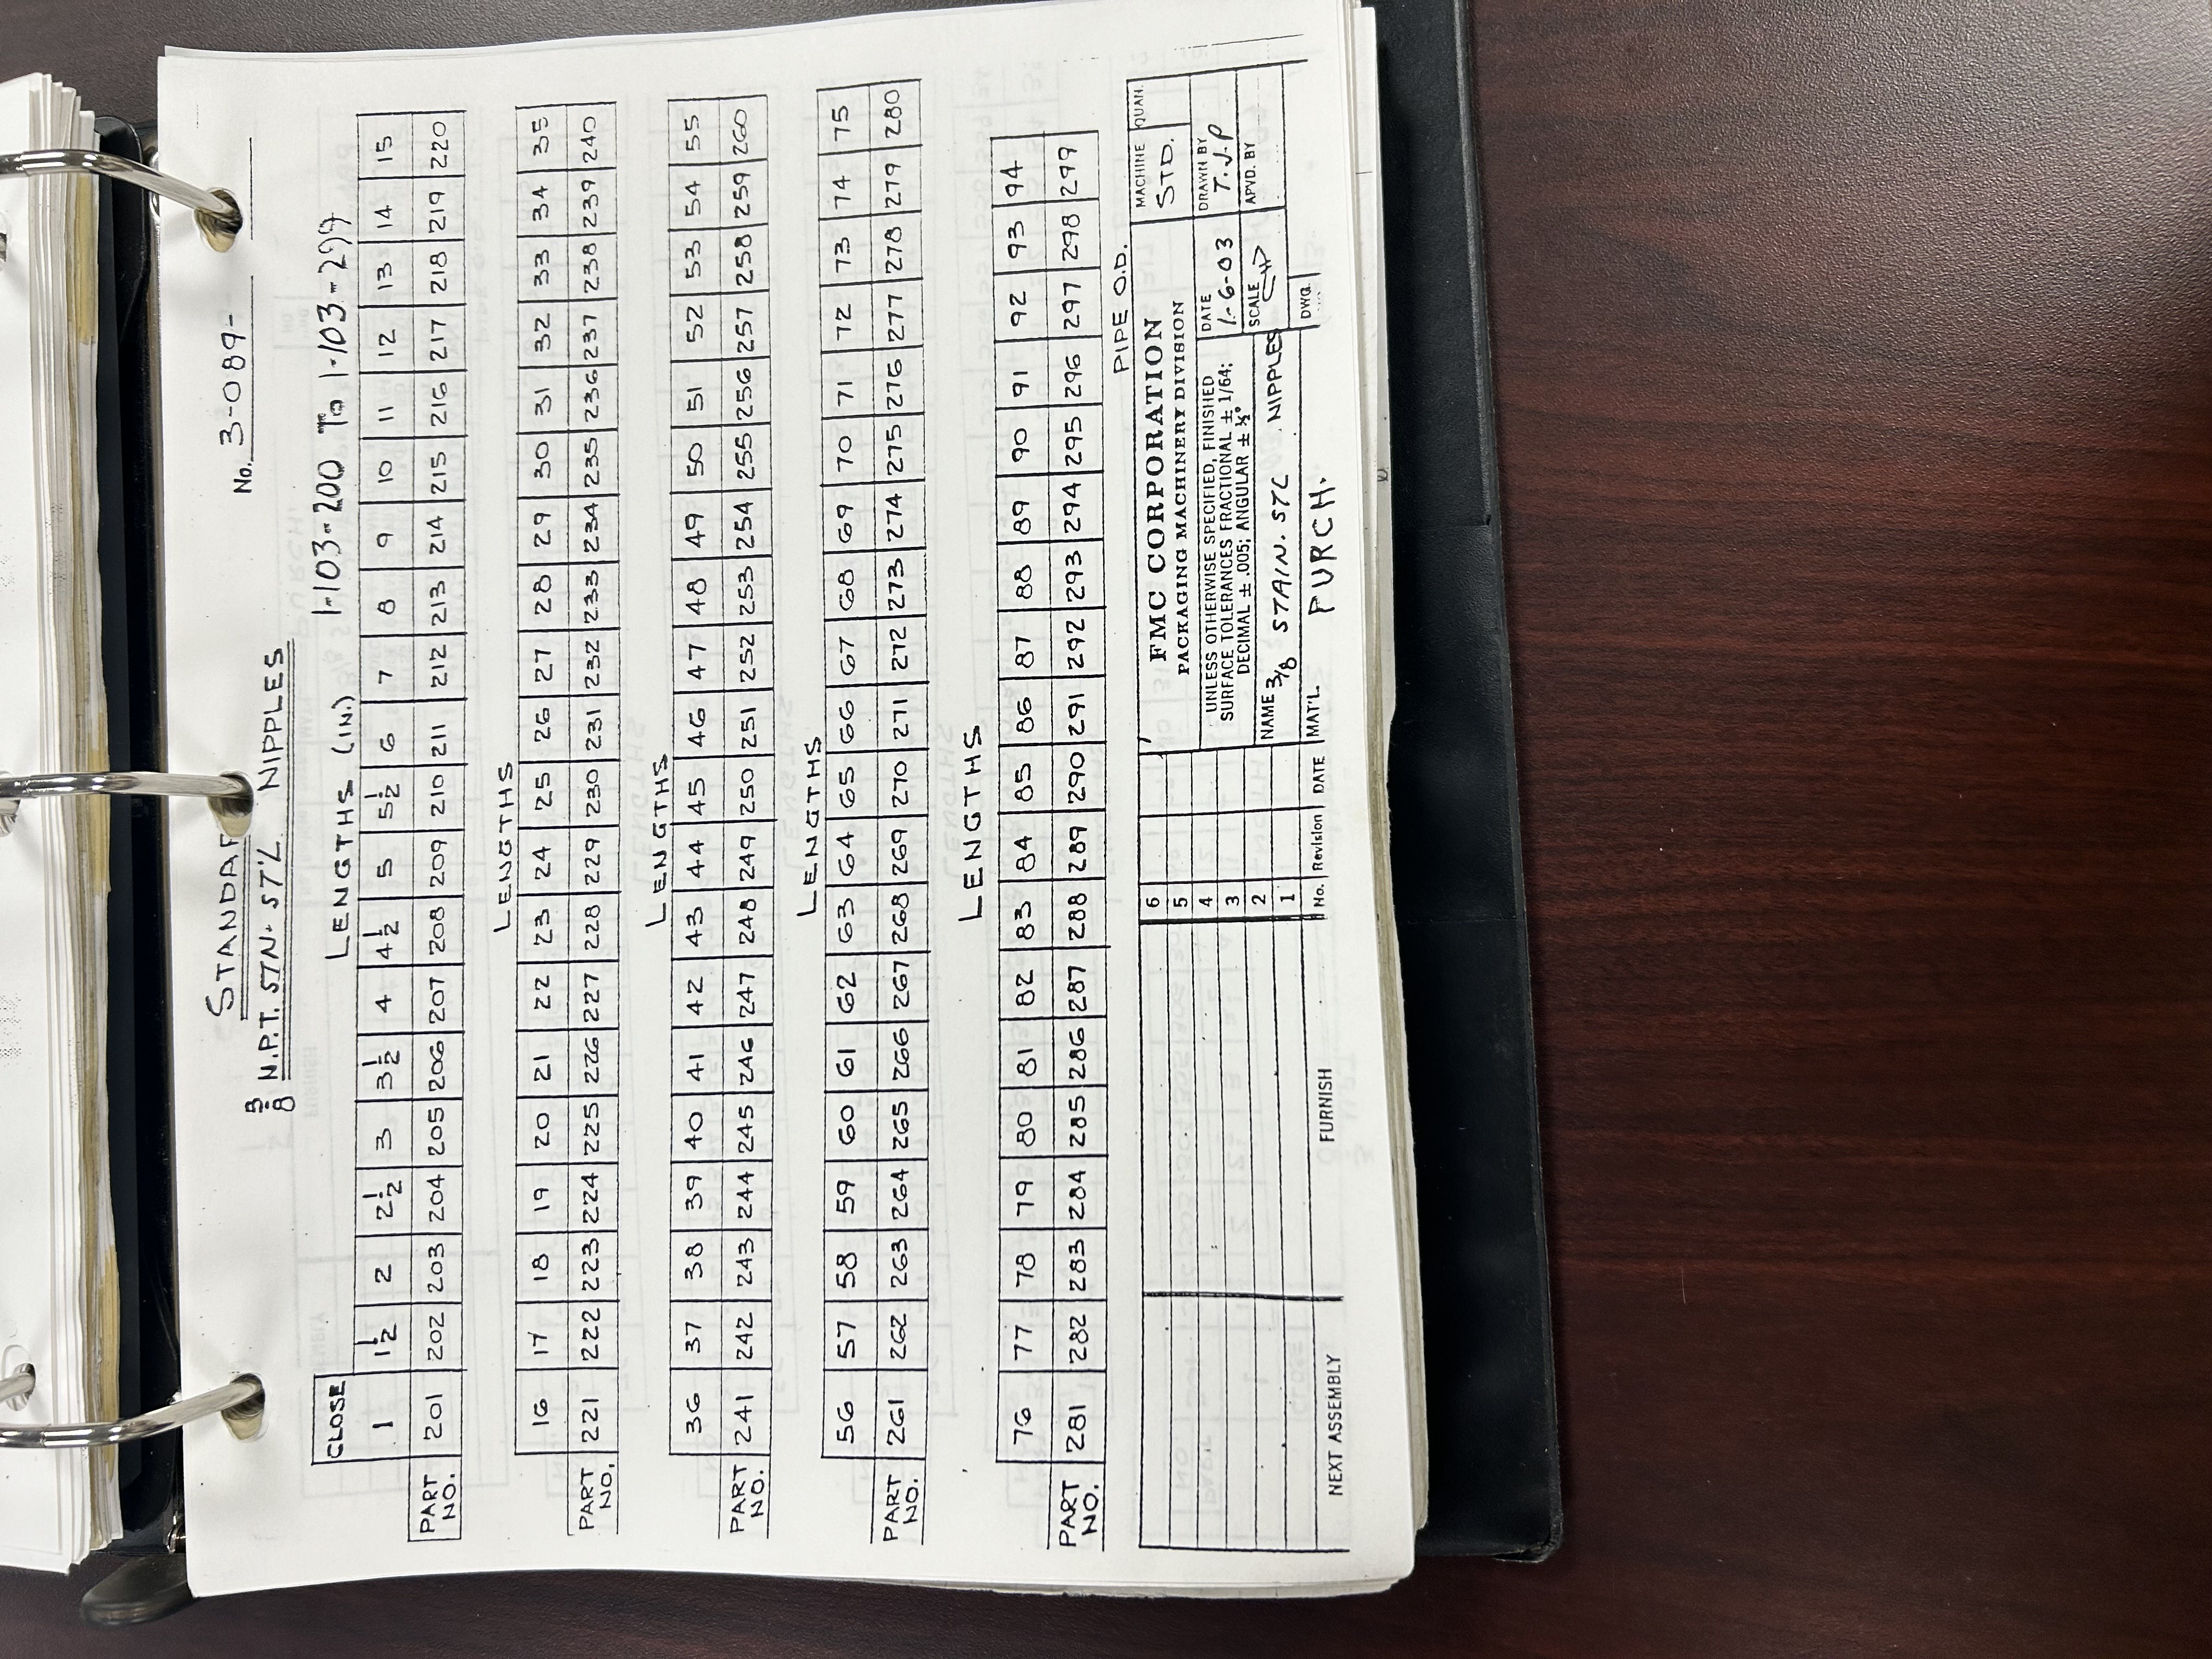 STANDAR
No. 3-089-
3/8 N.P.T. STN. ST'L NIPPLES
CLOSE LENGTHS (IN.) 1-103-200 To 1-103-299
1 1 1/2 2 2 1/2 3 3 1/2 4 4 1/2 5 5 1/2 6 7 8 9 10 11 12 13 14 15
PART NO. 201 202 203 204 205 206 207 208 209 210 211 212 213 214 215 216 217 218 219 220
LENGTHS
16 17 18 19 20 21 22 23 24 25 26 27 28 29 30 31 32 33 34 35
PART NO. 221 222 223 224 225 226 227 228 229 230 231 232 233 234 235 236 237 238 239 240
LENGTHS
36 37 38 39 40 41 42 43 44 45 46 47 48 49 50 51 52 53 54 55
PART NO. 241 242 243 244 245 246 247 248 249 250 251 252 253 254 255 256 257 258 259 260
LENGTHS
56 57 58 59 60 61 62 63 64 65 66 67 68 69 70 71 72 73 74 75
PART NO. 261 262 263 264 265 266 267 268 269 270 271 272 273 274 275 276 277 278 279 280
LENGTHS
76 77 78 79 80 81 82 83 84 85 86 87 88 89 90 91 92 93 94
PART NO. 281 282 283 284 285 286 287 288 289 290 291 292 293 294 295 296 297 298 299
PIPE O.D.
6
5
4
3
2
1
No. Revision DATE
NEXT ASSEMBLY
FURNISH
FMC CORPORATION
PACKAGING MACHINERY DIVISION
MACHINE STD.
QUAN.
UNLESS OTHERWISE SPECIFIED, FINISHED
SURFACE TOLERANCES FRACTIONAL ± 1/64;
DECIMAL ± .005; ANGULAR ± ½°
DATE 1-6-03
DRAWN BY T.J.P
SCALE
APVD. BY
NAME 3/8 STAIN. STL NIPPLES
MAT'L. PURCH.
DWG.